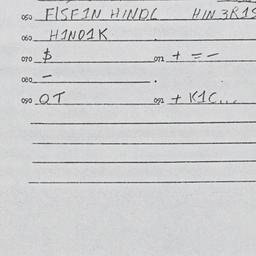 050 FISFIN HINDL HIN3R1S
060 H1N01K
070 $ 071 + = -
080 - .
090 OT 091 + K1C...